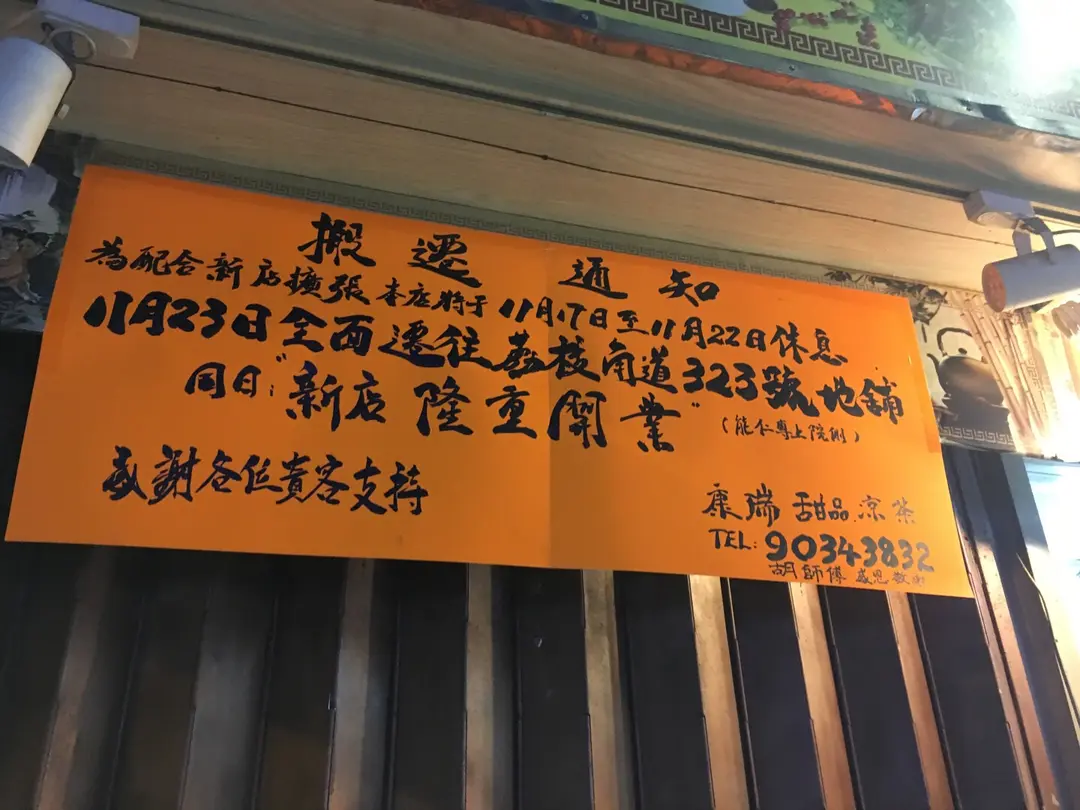 搬遷通知
為配合新店擴張 本店將于11月17日至11月22日休息
11月23日全面遷往荔枝角道323號地舖
同日:"新店隆重開業"
(能仁專上院側)
感謝各位貴客支持
康瑞 甜品.涼茶
TEL: 90343832
胡師傅 感恩敬謝